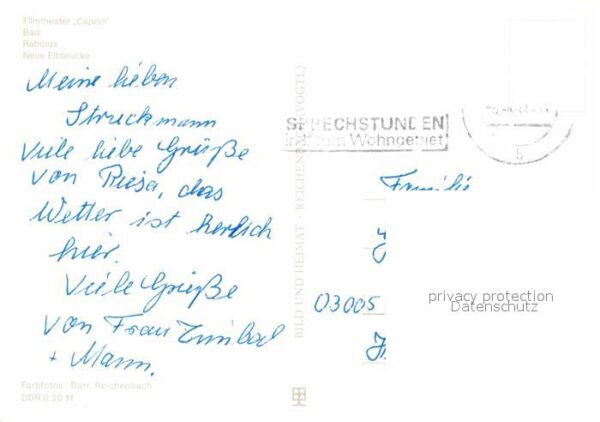 Filmtheater „Capitol"
Bad
Rathaus
Neue Elbbrücke
Meine lieben
Struckmann
Viele liebe Grüße
von Riesa, das
Wetter ist herlich
hier.
Viele Grüße
von Frau
+ Mann.
Farbfotos: Darr, Reichenbach
DDR 0,20 M
BILD UND HEIMAT REICHENBACH (VOGTL)
SPRECHSTUNDEN
im Wohngebiet
Familie
03005
privacy protection
Datenschutz